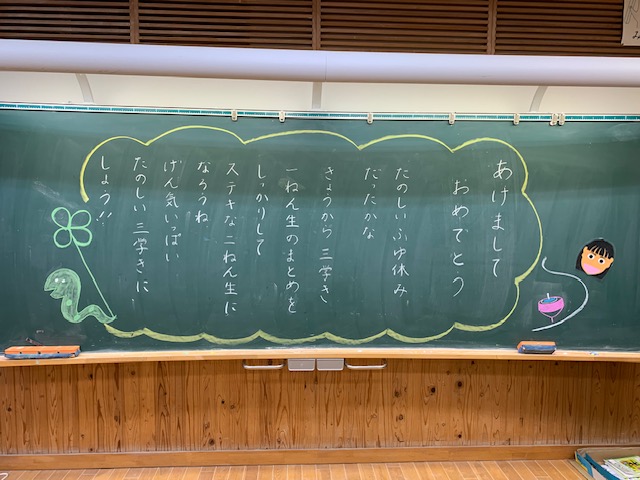 あけまして
おめでとう
たのしいふゆ休み
だったかな
きょうから三学き
一ねん生のまとめを
しっかりして
ステキな二ねん生に
なろうね
げん気いっぱい
たのしい三学きに
しょう!!